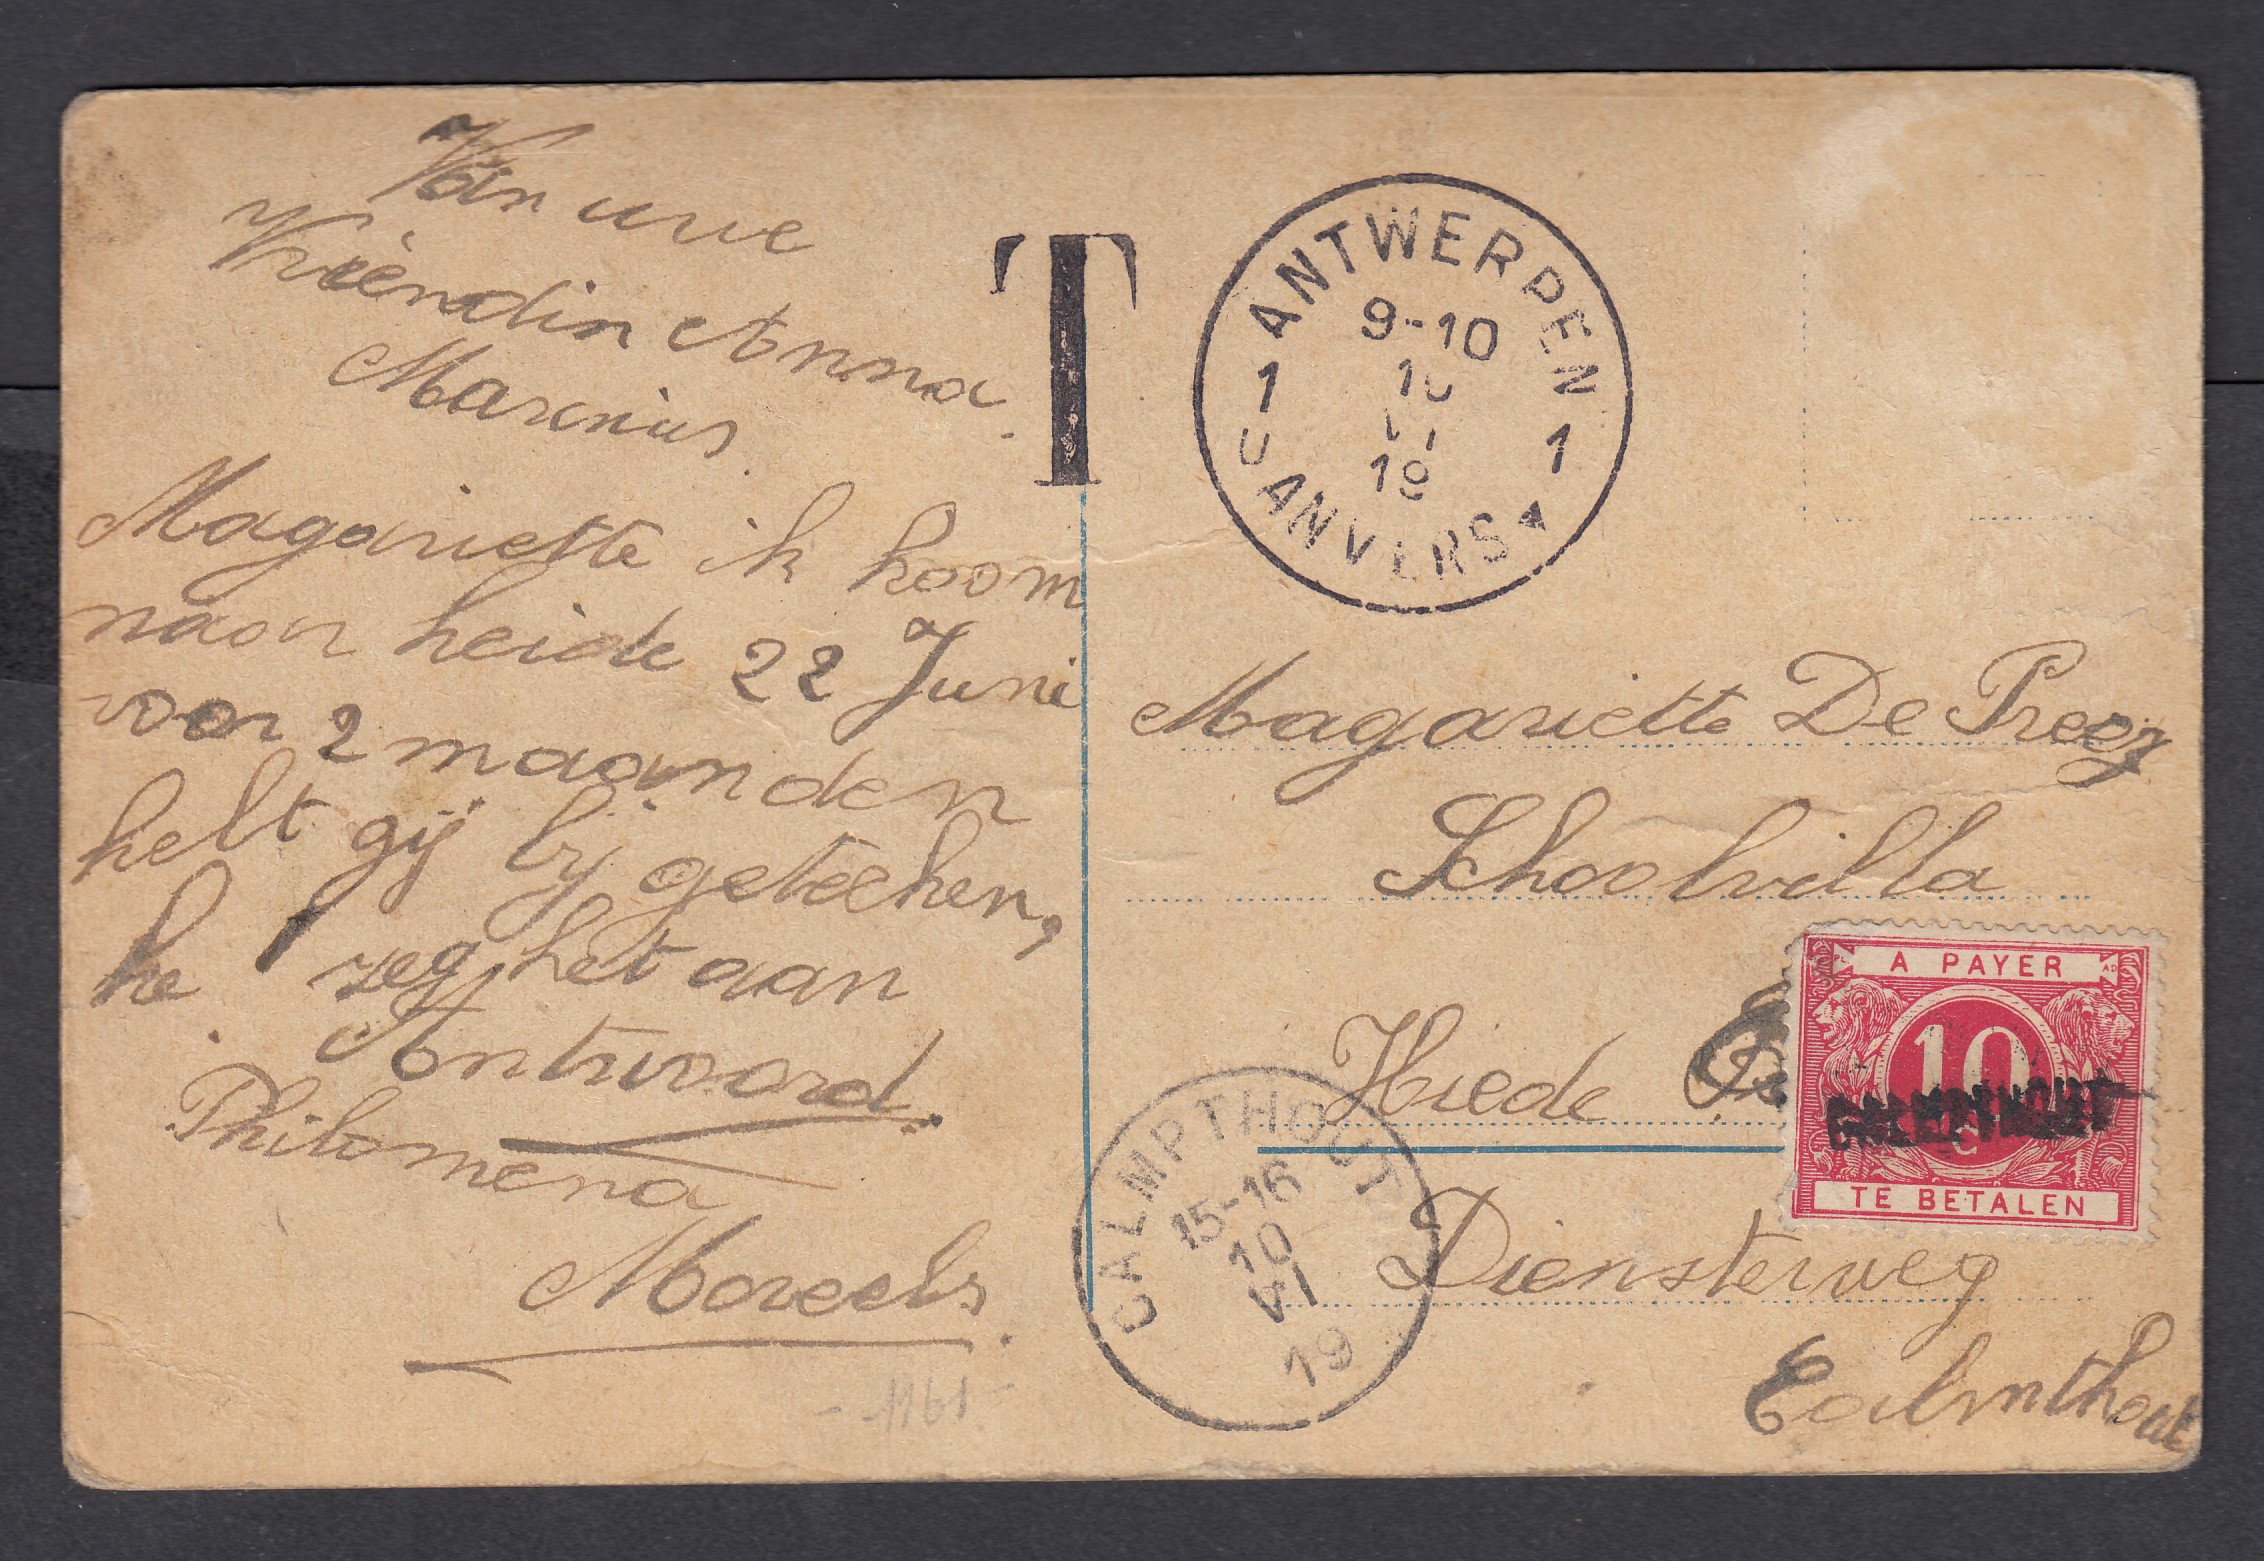 Van uwe
Vriendin Anna
Marinus.
Magariette ik koom
naar heide 22 Juni
voor 2 maanden
helt gij bij geteeken,
he zeg het aan
Antwoord.
Philomena
Moreels.
- 1161 -
T
ANTWERPEN
9-10
10
VI
19
1 1
ANVERS
Magariette De Preez
Schoolvilla
Hiede
Diensterweg
Calmthout
A PAYER
10
C
CALMPTHOUT
TE BETALEN
CALMPTHOUT
15-16
10
VI
19